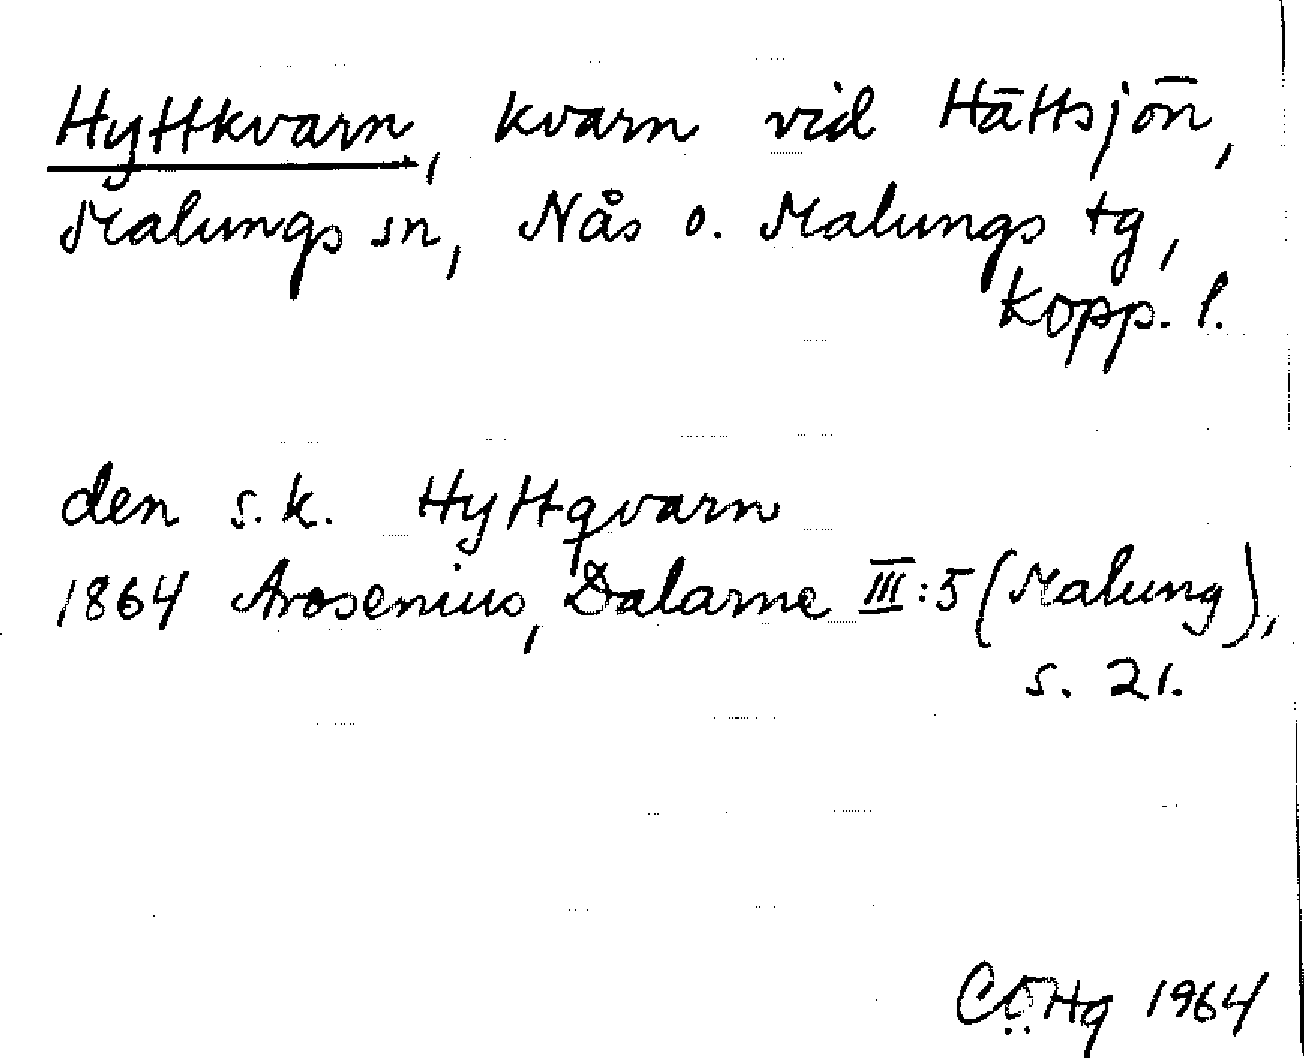 Hyttkvarn, kvarn vid Hättsjön,
Malungs sn, Nås o. Malungs tg,
Kopp. l.
den s.k. Hyttqvarn
1864 Arosenius, Dalarne III:5 (Malung),
s. 21.
CÖHg 1964